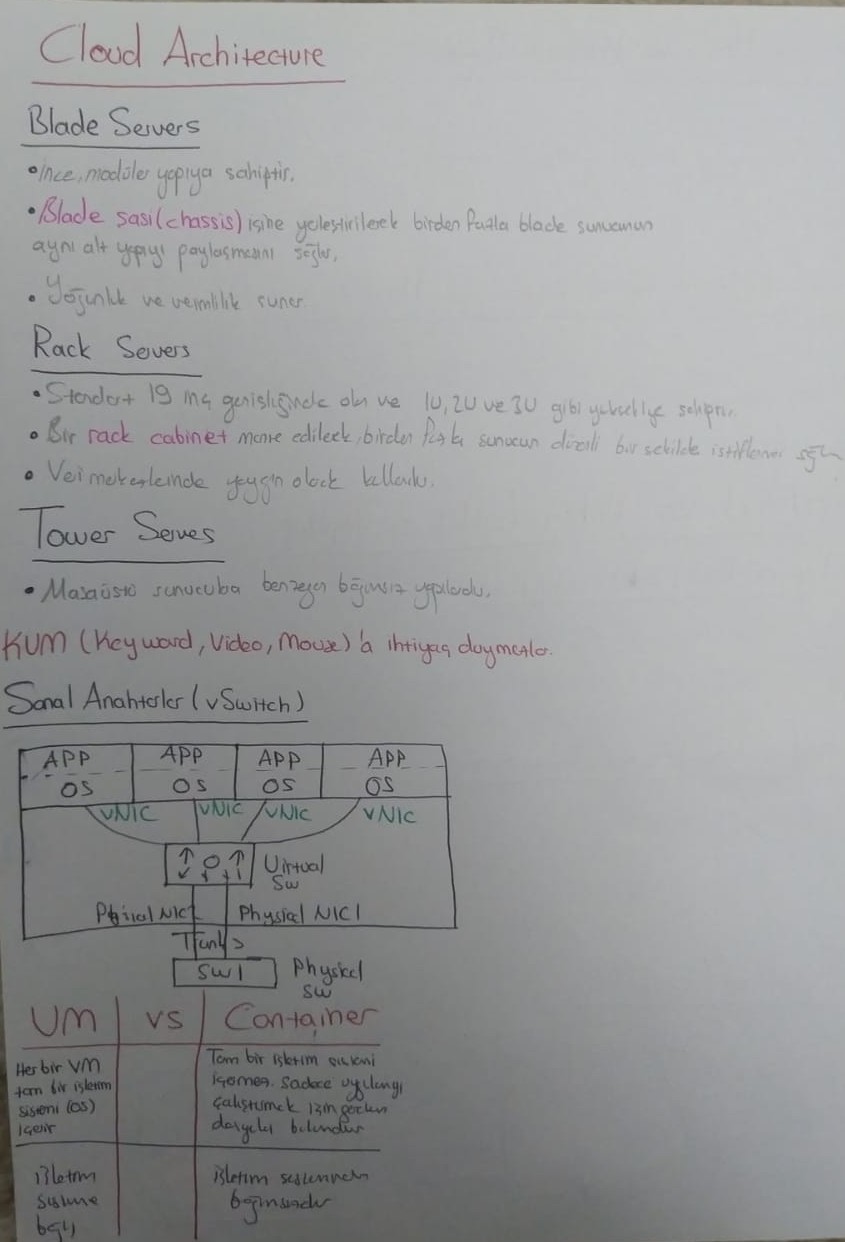 Cloud Architecture
Blade Servers
• İnce, modüler yapıya sahiptir.
• Blade şasi (chassis) içine yerleştirilerek birden fazla blade sunucunun
aynı alt yapıyı paylaşmasını sağlar.
• Yoğunluk ve verimlilik sunar.
Rack Servers
• Standart 19 inç genişliğinde olan ve 1U, 2U ve 3U gibi yüksekliğe sahiptir.
• Bir rack cabinet monte edilerek, birden fazla sunucun düzenli bir şekilde istiflenmesi sağlar
• Veri merkezlerinde yaygın olarak kullanılır.
Tower Serves
• Masaüstü sunucuba benzeyen bağımsız yapılardır.
KVM (Keyward, Video, Mouse)'a ihtiyaç duymazlar.
Sanal Anahtarlar (vSwitch)
APP APP APP APP
OS OS OS OS
vNIC vNIC vNIC vNIC
Virtual
Sw
Phsical NIC1 Physical NIC1
Trunks
SW1 Physical
SW
VM vs Container
Her bir VM
tam bir işletim
sistemi (OS)
içerir
Tam bir işletim sistemi
içermez. Sadece uygulamayı
çalıştırmak için gereken
dosyalar bulundur
işletim
sistemine
bağlı
işletim sisteminden
bağımsızdır